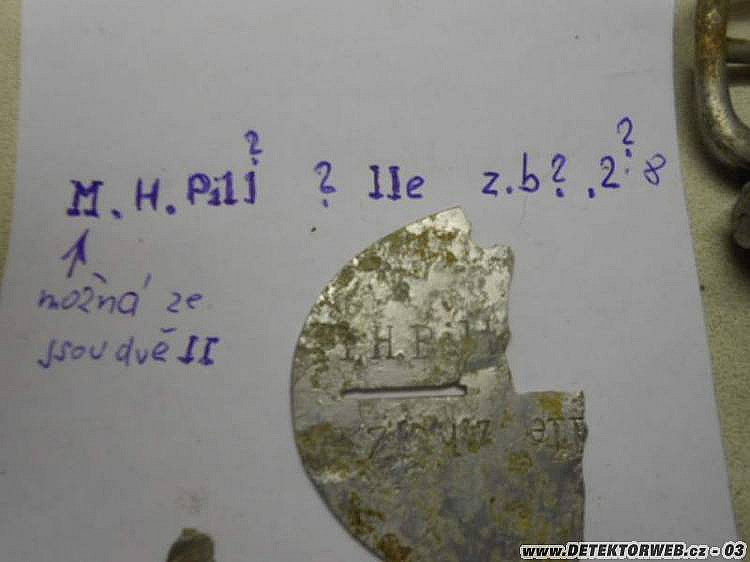 ?
M. H. Pilj ? IIe z.b?. .2?8
možná ze
jsou dvě II
.H.Pil
www.DETEKTORWEB.cz - 03